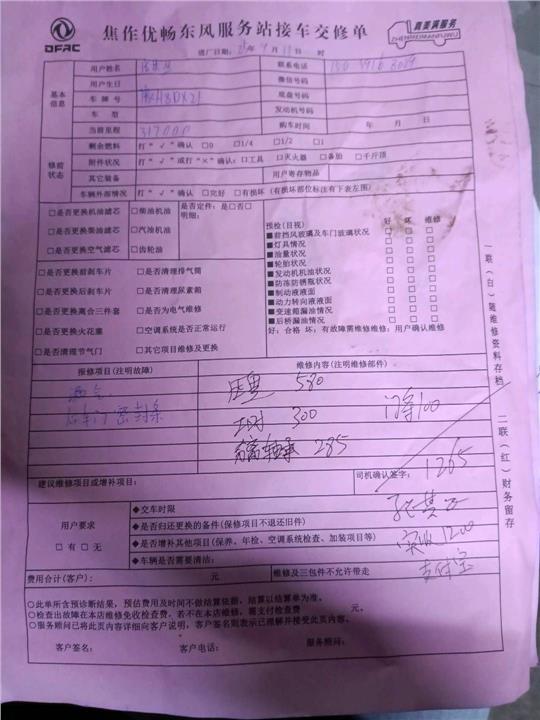 DFAC
焦作优畅东风服务站接车交修单
真美满服务
ZHENMEIMANFUWU
进厂日期: 年 9 月 日 时
基本信息
用户姓名
联系电话
用户生日
微信号码
车牌号
底盘号码
车 型
发动机号码
当前里程 317000
购车时间 年 月 日
修前状态
剩余燃料 打“√”确认 □0 □1/4 □1/2 □1
附件状况 打“√”或打“×”确认: □工具 □灭火器 □备胎 □千斤顶
其它状态
用户寄存物品
车辆外部情况 打“√”确认 □完好 □有损坏 (有损坏部位标注有下表左图)
□是否更换机油滤芯 □柴油机油
□是否更换柴油滤芯 □汽油机油
□是否更换空气滤芯 □齿轮油
是否定件: 是□否□
明细:
□是否更换前刹车片 □是否清理排气筒
□是否更换后刹车片 □是否清理尿素箱
□是否更换离合三件套 □是否为电气维修
□是否更换火花塞 □空调系统是否正常运行
□是否清理节气门 □其它项目维修及更换
预检(目视) 好 坏 维修
■前挡风玻璃及车门玻璃状况 □ □ □
■灯具情况 □ □ □
■油量状况 □ □ □
■轮胎状况 □ □ □
■发动机机油状况 □ □ □
■防冻防锈瓶状况 □ □ □
■制动液液面 □ □ □
■动力转向液液面 □ □ □
■变速箱漏油情况 □ □ □
■后桥漏油情况 □ □ □
好: 合格 坏: 有故障需维修维修: 用户确认维修
报修项目(注明故障)
维修内容(注明维修部件)
车门密封条
压盘 580
工时 300 门条100
分离轴承 285
建议维修项目或增补项目:
司机确认签字: 1265
用户要求
□有 □无
◆交车时限
◆是否归还更换的备件(保修项目不退还旧件)
◆是否增补其他项目(保养、年检、空调系统检查、加装项目等)
◆车辆是否需要清洁:
实收1200
支付宝
费用合计(客户): 元
维修及三包件不允许带走
○此单所含预诊断结果，预估费用及时间不做结算依据，结算以结算单为准。
○检查出故障在本店维修免收检查费，若不在本店维修，需支付检查费 元。
○服务顾问已将此页内容详细向客户说明，客户签名则表示已理解并接受此页内容。
客户签名: 客户电话: 服务顾问:
一联(白)随维修资料存档
二联(红)财务留存